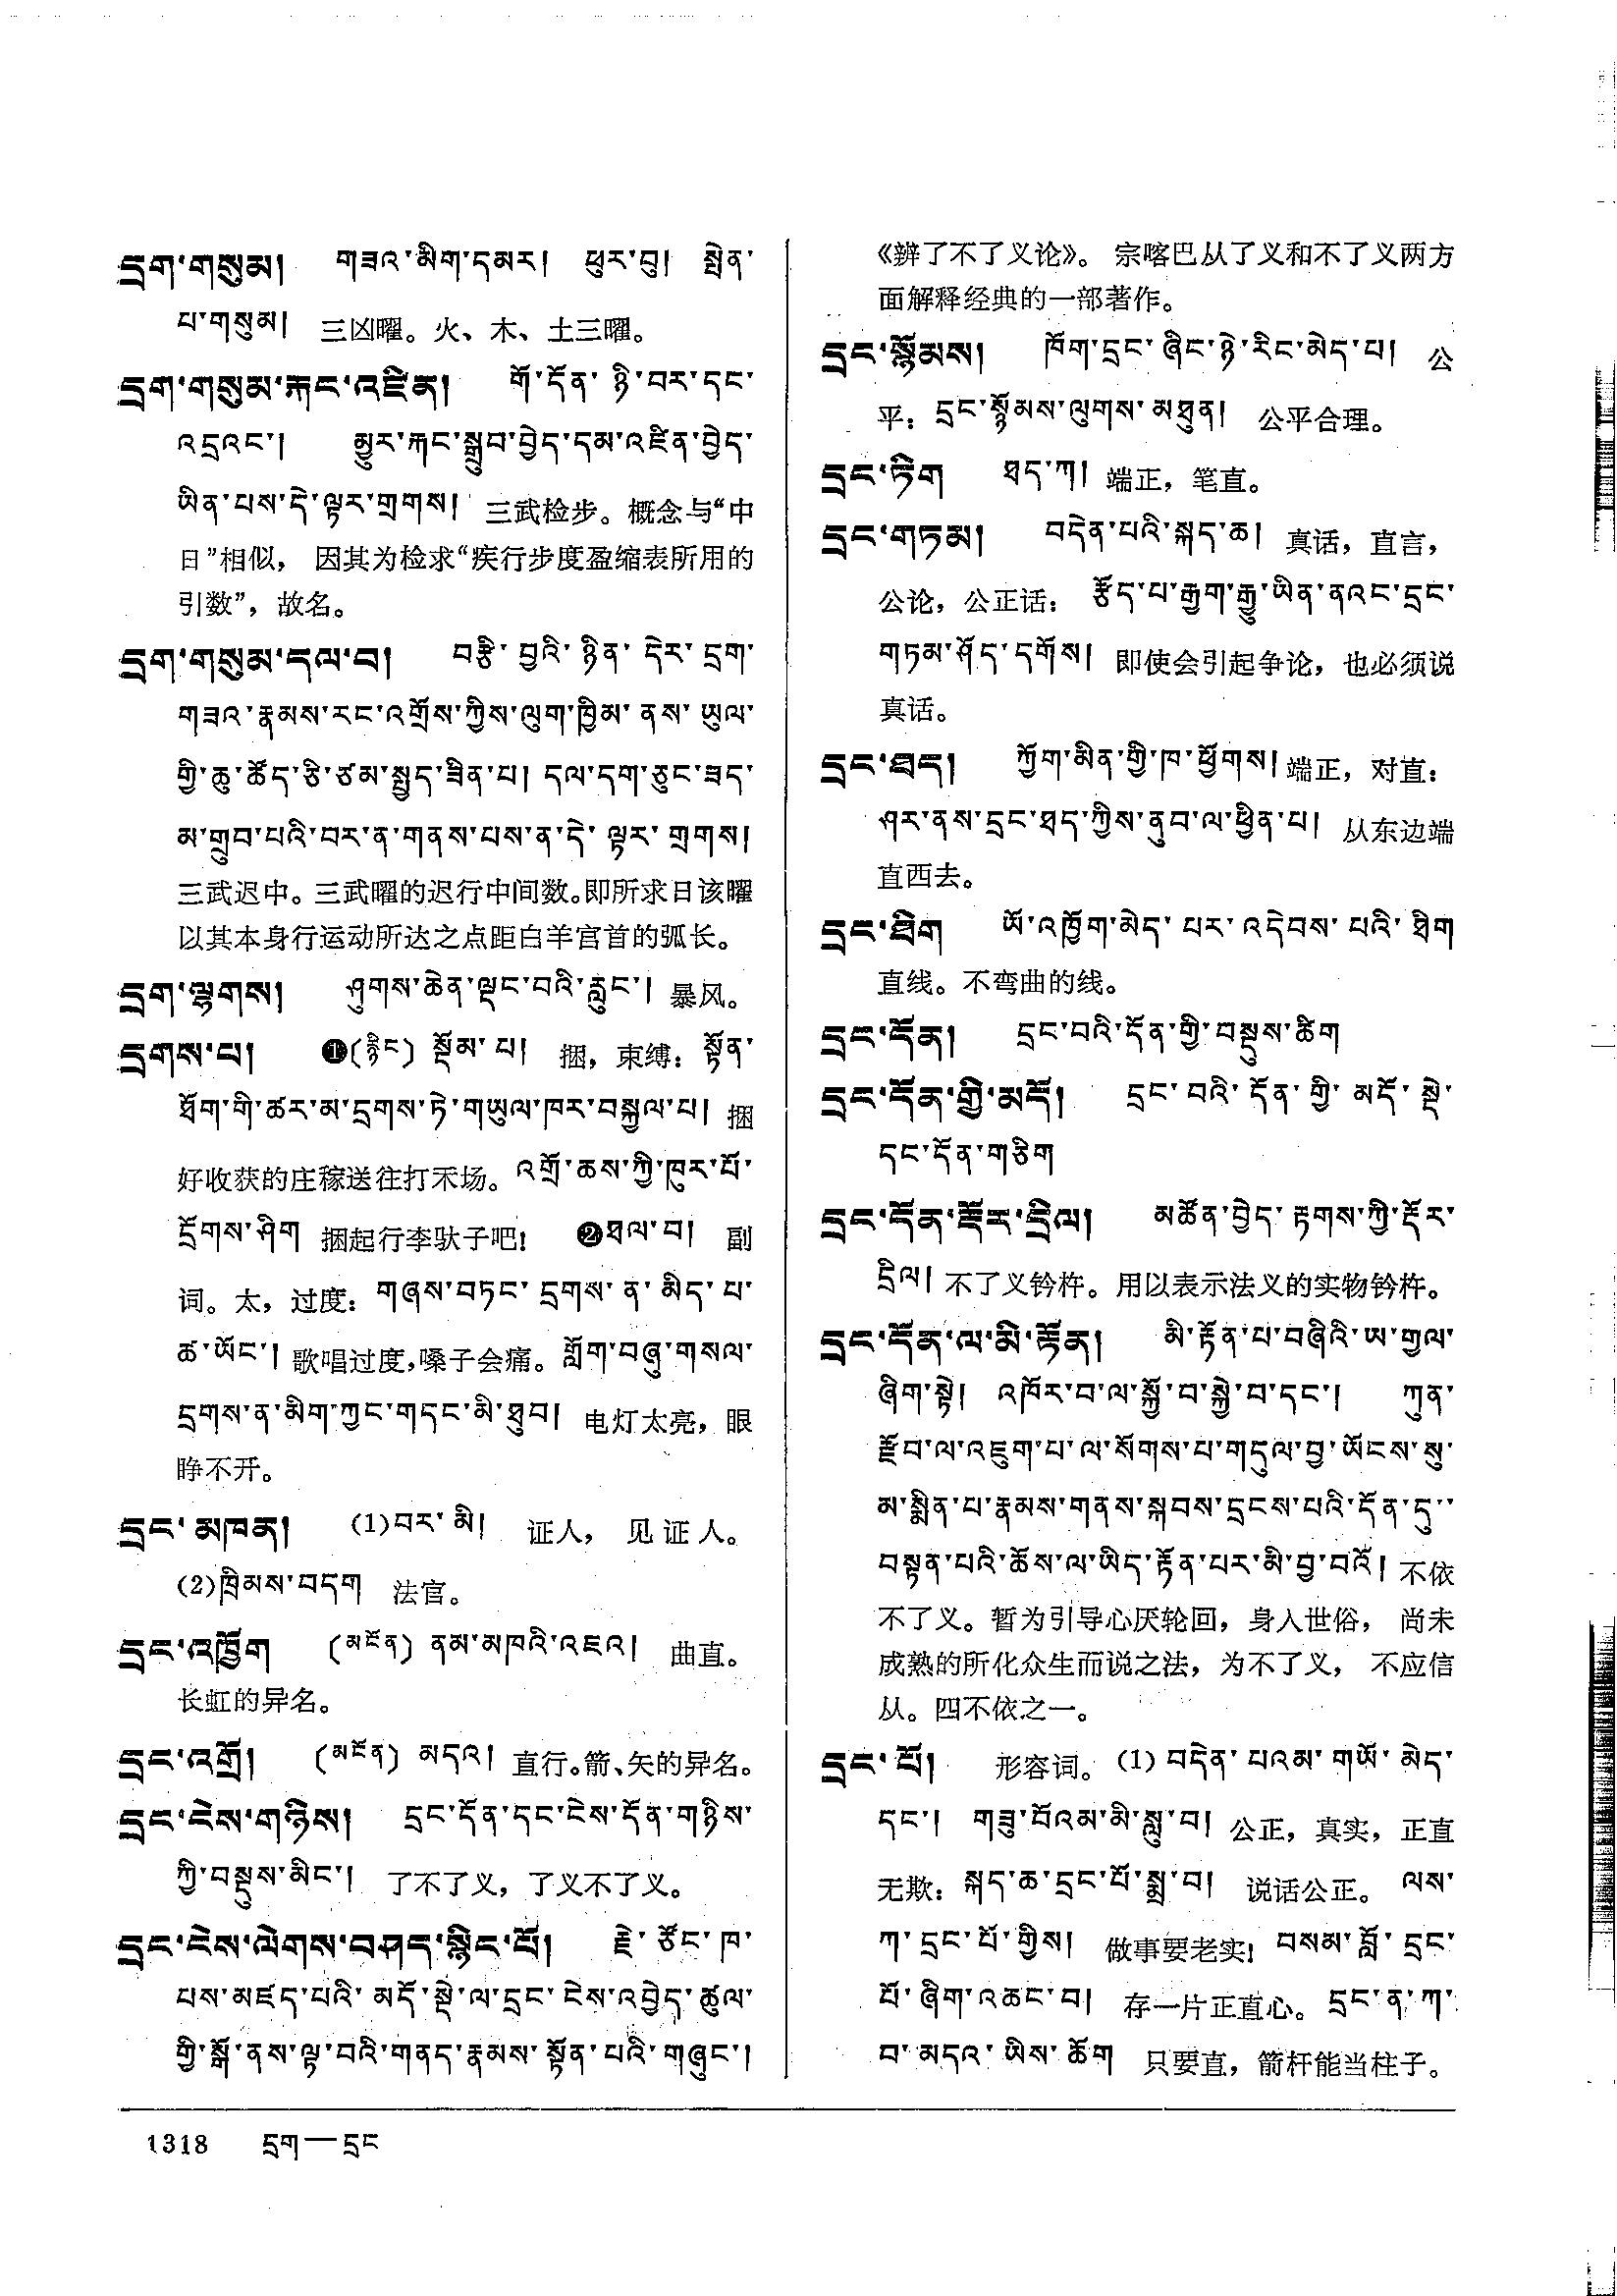 དྲག་གསུམ། གཟའ་མིག་དམར། ཕུར་བུ། སྤེན་
པ་གསུམ། 三凶曜。火、木、土三曜。
དྲག་གསུམ་རྐང་འཛིན། གོ་དོན་ ཉི་བར་དང་
འདྲའང་། མྱུར་རྐང་སྒྲུབ་བྱེད་དམ་འཛིན་བྱེད་
ཡིན་པས་དེ་ལྟར་གྲགས། 三武检步。概念与“中
日”相似， 因其为检求“疾行步度盈缩表所用的
引数”，故名。
དྲག་གསུམ་དལ་བ། བརྩི་ བྱའི་ ཉིན་ དེར་ དྲག་
གཟའ་རྣམས་རང་འགྲོས་ཀྱིས་ལུག་ཁྱིམ་ ནས་ ཡུལ་
གྱི་ཆུ་ཚོད་ཅི་ཙམ་སྤྱད་ཟིན་པ། དལ་དག་ཅུང་ཟད་
མ་གྲུབ་པའི་བར་ན་གནས་པས་ན་དེ་ ལྟར་ གྲགས།
三武迟中。三武曜的迟行中间数。即所求日该曜
以其本身行运动所达之点距白羊宫首的弧长。
དྲག་ལྷགས། ཤུགས་ཆེན་ལྡང་བའི་རླུང་། 暴风。
དྲགས་པ། ❶(རྙིང) སྡོམ་ པ། 捆，束缚：སྟོན་
ཐོག་གི་ཚར་མ་དྲགས་ཏེ་གཡུལ་ཁར་བསྐྱལ་པ། 捆
好收获的庄稼送往打禾场。འགྲོ་ཆས་ཀྱི་ཁུར་པོ་
དྲོགས་ཤིག 捆起行李驮子吧! ❷ཐལ་བ། 副
词。太，过度：གཞས་བཏང་ དྲགས་ ན་ མིད་ པ་
ཚ་ཡོང་། 歌唱过度,嗓子会痛。གློག་བཞུ་གསལ་
དྲགས་ན་མིག་ཀྱང་གདང་མི་ཐུབ། 电灯太亮，眼
睁不开。
དྲང་མཁན། (1)བར་མི། 证人， 见证人。
(2)ཁྲིམས་བདག 法官。
དྲང་འཁྱོག (མངོན) ནམ་མཁའི་འཇའ། 曲直。
长虹的异名。
དྲང་འགྲོ། (མངོན) མདའ། 直行。箭、矢的异名。
དྲང་ངེས་གཉིས། དྲང་དོན་དང་ངེས་དོན་གཉིས་
ཀྱི་བསྡུས་མིང་། 了不了义，了义不了义。
དྲང་ངེས་ལེགས་བཤད་སྙིང་པོ། རྗེ་ ཙོང་ ཁ་
པས་མཛད་པའི་ མདོ་སྡེ་ལ་དྲང་ ངེས་འབྱེད་ཚུལ་
གྱི་སྒོ་ནས་ལྟ་བའི་གནད་རྣམས་ སྟོན་ པའི་གཞུང་།
《辨了不了义论》。宗喀巴从了义和不了义两方
面解释经典的一部著作。
དྲང་སྙོམས། ཁོག་དྲང་ ཞིང་ཉེ་རིང་མེད་པ། 公
平：དྲང་སྙོམས་ལུགས་མཐུན། 公平合理。
དྲང་ཏིག ཐད་ཀ། 端正，笔直。
དྲང་གཏམ། བདེན་པའི་སྐད་ཆ། 真话，直言，
公论，公正话： རྩོད་པ་རྒྱག་རྒྱུ་ཡིན་ནའང་དྲང་
གཏམ་ཤོད་དགོས། 即使会引起争论，也必须说
真话。
དྲང་ཐད། ཀྱོག་མིན་གྱི་ཁ་ཕྱོགས། 端正，对直：
ཤར་ནས་དྲང་ཐད་ཀྱིས་ནུབ་ལ་ཕྱིན་པ། 从东边端
直西去。
དྲང་ཐིག ཡོ་འཁྱོག་མེད་ པར་ འདེབས་ པའི་ ཐིག
直线。不弯曲的线。
དྲང་དོན། དྲང་བའི་དོན་གྱི་བསྡུས་ཚིག
དྲང་དོན་གྱི་མདོ། དྲང་ བའི་ དོན་ གྱི་ མདོ་ སྡེ་
དང་དོན་གཅིག
དྲང་དོན་རྡོར་དྲིལ། མཚོན་བྱེད་ རྟགས་ཀྱི་རྡོར་
དྲིལ། 不了义铃杵。用以表示法义的实物铃杵。
དྲང་དོན་ལ་མི་རྟོན། མི་རྟོན་པ་བཞིའི་ཡ་གྱལ་
ཞིག་སྟེ། འཁོར་བ་ལ་སྐྱོ་བ་སྐྱེ་བ་དང་། ཀུན་
རྫོབ་ལ་འཇུག་པ་ལ་སོགས་པ་གདུལ་བྱ་ཡོངས་སུ་
མ་སྨིན་པ་རྣམས་གནས་སྐབས་དྲངས་པའི་དོན་དུ་
བསྟན་པའི་ཆོས་ལ་ཡིད་རྟོན་པར་མི་བྱ་བའོ། 不依
不了义。暂为引导心厌轮回，身入世俗， 尚未
成熟的所化众生而说之法，为不了义， 不应信
从。四不依之一。
དྲང་པོ། 形容词。(1) བདེན་ པའམ་ གཡོ་ མེད་
དང་། གཟུ་བོའམ་མི་སླུ་བ། 公正，真实，正直
无欺：སྐད་ཆ་དྲང་པོ་སྨྲ་བ། 说话公正。 ལས་
ཀ་དྲང་པོ་གྱིས། 做事要老实! བསམ་བློ་ དྲང་
པོ་ ཞིག་འཆང་བ། 存一片正直心。དྲང་ན་ཀ་
བ་མདའ་ཡིས་ཆོག 只要直，箭杆能当柱子。
1318 དྲག——དྲང